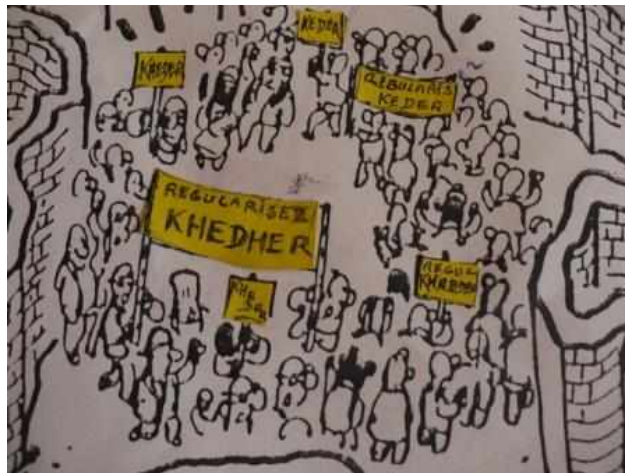 KHEDER
KEDER
REGULARISE
KEDER
REGULARISEZ
KHEDHER
KHE
REGUL